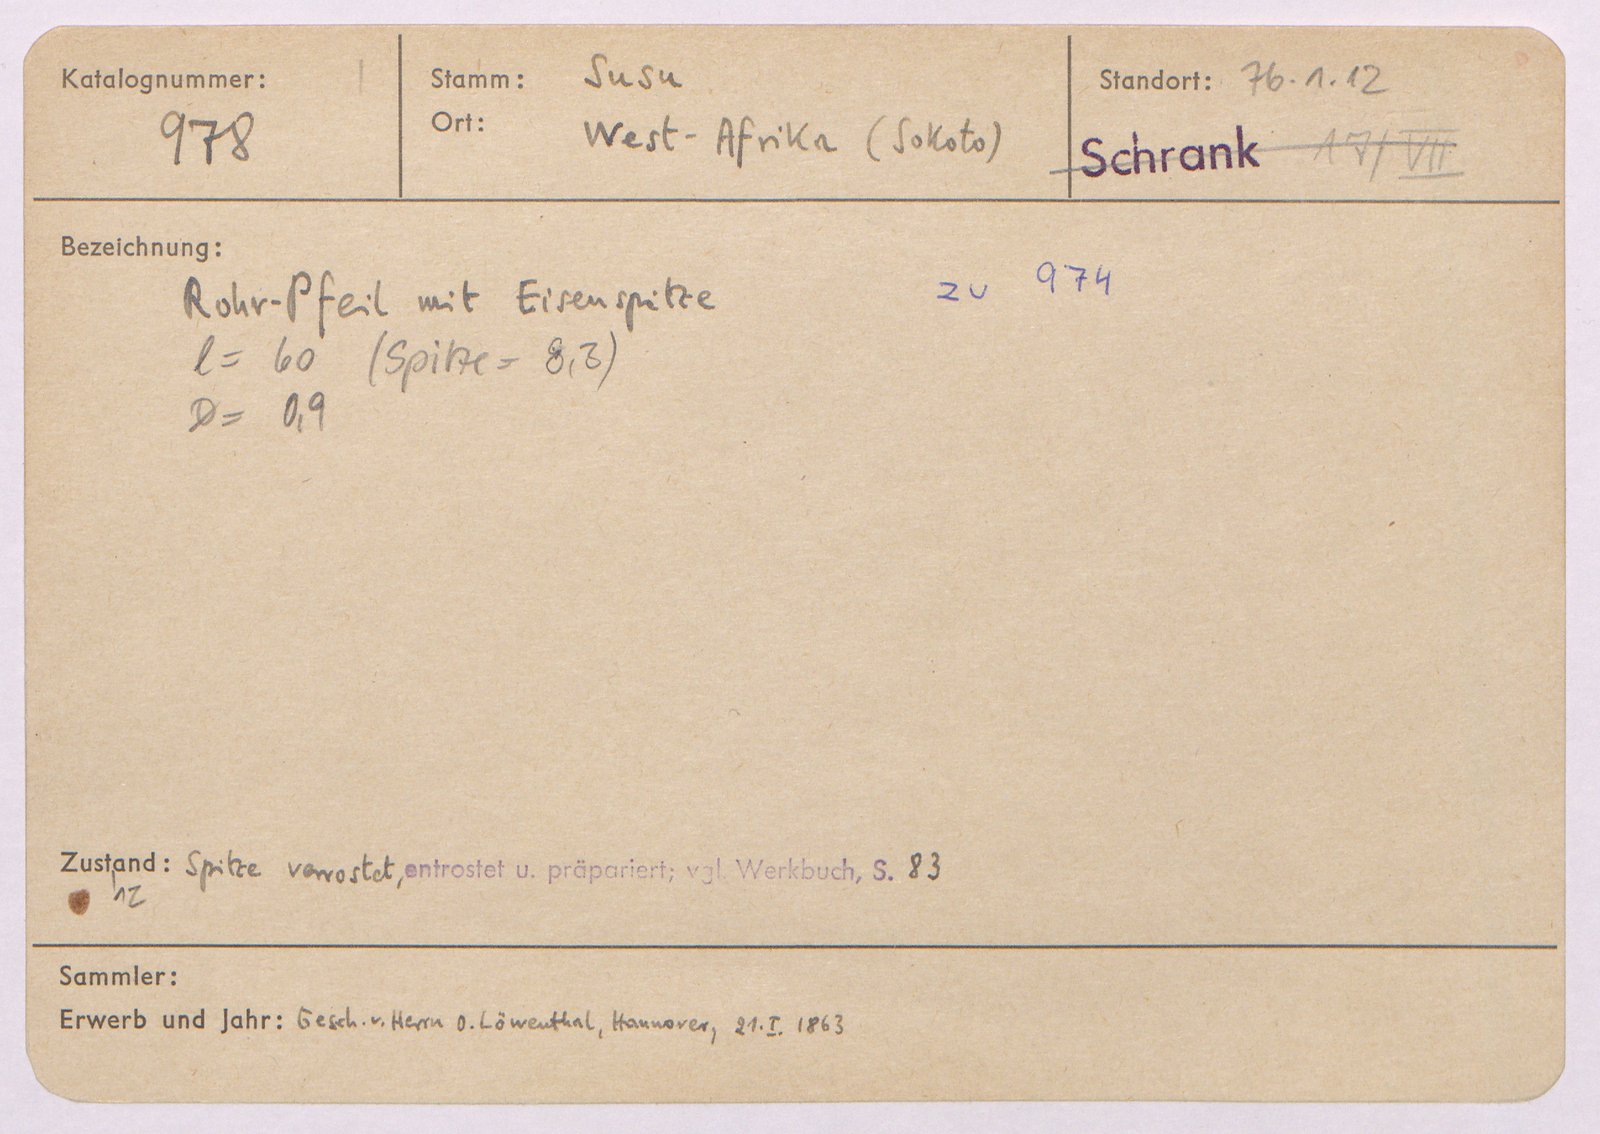 Katalognummer:
978
Stamm: Susu
Ort: West-Afrika (Sokoto)
Standort: 76.1.12
Schrank 17/VII
Bezeichnung:
Rohr-Pfeil mit Eisenspitze zu 974
l= 60 (Spitze= 8,3)
D= 0,9
Zustand: Spitze verrostet, entrostet u. präpariert; vgl. Werkbuch, S. 83
12
Sammler:
Erwerb und Jahr: Gesch. v. Herrn O. Löwenthal, Hannover, 21.I. 1863